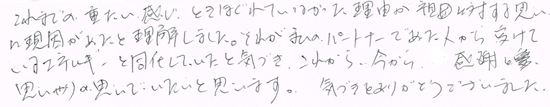 これまでの重たい感じ、ときはぐれているかった理由が祖母に対する思い
に現因があたと理解しました。それが私のパートナーであた人から受けて
いるエネルギーと同化していたと気づき、これから、今から 感謝と
思いやりの思いでいたいと思います。 気づきをありがとうございました。